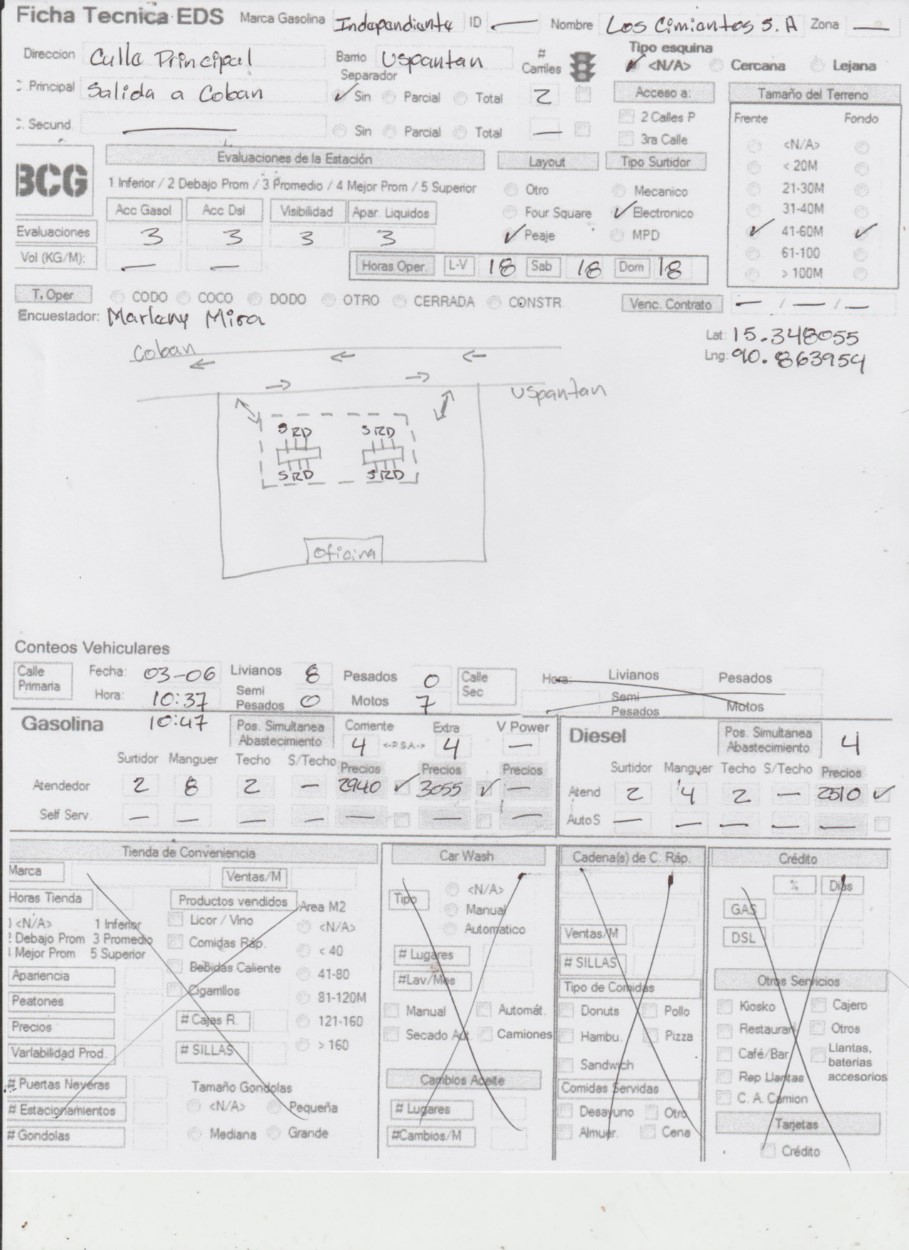 Ficha Tecnica EDS Marca Gasolina Independiente ID — Nombre Los Cimientos S.A Zona —
Direccion Calle Principal Barrio Uspantan # Carriles Tipo esquina
<N/A> Cercana Lejana
C. Principal Salida a Coban Separador Sin Parcial Total 2 Acceso a: Tamaño del Terreno
C. Secund. — Sin Parcial Total — 2 Calles P Frente Fondo
3ra Calle <N/A>
BCG Evaluaciones de la Estación Layout Tipo Surtidor < 20M
1 Inferior / 2 Debajo Prom / 3 Promedio / 4 Mejor Prom / 5 Superior Otro Mecanico 21-30M
Acc Gasol Acc Dsl Visibilidad Apar. Liquidos Four Square Electronico 31-40M
Evaluaciones 3 3 3 3 Peaje MPD 41-60M
Vol (KG/M): — — Horas Oper. L-V 18 Sab 18 Dom 18 61-100
> 100M
T. Oper CODO COCO DODO OTRO CERRADA CONSTR Venc. Contrato — / — / —
Encuestador: Marleny Mira
Lat: 15.348055
Lng: 90.863954
Coban
Uspantan
SRD SRD
SRD SRD
Oficina
Conteos Vehiculares
Calle Primaria Fecha: 03-06 Livianos 8 Pesados 0 Calle Sec Hora: Livianos Pesados
Hora: 10:37 Semi Pesados 0 Motos 7 Semi Pesados Motos
10:47
Gasolina Pos. Simultanea Abastecimiento Corriente 4 <-P.S.A-> Extra 4 V Power — Diesel Pos. Simultanea Abastecimiento 4
Surtidor Manguer Techo S/Techo Precios Precios Precios Surtidor Manguer Techo S/Techo Precios
Atendedor 2 8 2 — 2940 3055 — Atend 2 4 2 — 2510
Self Serv. — — — — — — — Auto S — — — — —
Tienda de Conveniencia Car Wash Cadena(s) de C. Ráp. Crédito
Marca Ventas/M
Horas Tienda Productos vendidos Area M2
<N/A> 1 Inferior Licor / Vino <N/A>
2 Debajo Prom 3 Promedio Comidas Ráp. < 40
4 Mejor Prom 5 Superior Bebidas Caliente 41-80
Apariencia Cigarrillos 81-120M
Peatones # Cajas R. 121-160
Precios # SILLAS > 160
Variabilidad Prod.
# Puertas Neveras Tamaño Gondolas
# Estacionamientos <N/A> Pequeña
# Gondolas Mediana Grande
Tipo <N/A>
Manual
Automatico
# Lugares
#Lav/Mes
Manual Automát.
Secado Aut. Camiones
Cambios Aceite
# Lugares
#Cambios/M
Ventas/M
# SILLAS
Tipo de Comidas
Donuts Pollo
Hambu. Pizza
Sandwich
Comidas Servidas
Desayuno Otro
Almuer. Cena
% Dias
GAS
DSL
Otros Servicios
Kiosko Cajero
Restauran Otros
Café/Bar Llantas, baterias accesorios
Rep Llantas
C. A. Camion
Tarjetas
Crédito